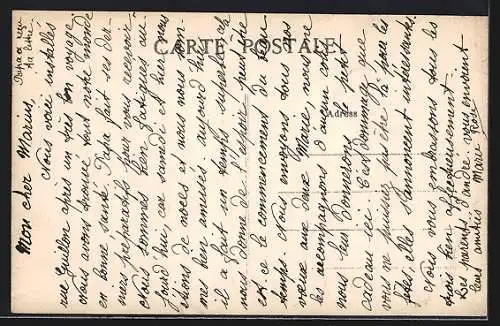 Papa a reçu
ta lettre
CARTE POSTALE
Adresse
Mon cher Marius,
Nous voici installés
rue Guillon après un très bon voyage
Nous avons trouvé tout notre monde
en bonne santé. Papa fait ses der-
niers préparatifs pour vous recevoir
Nous sommes bien fatigués au-
jourd'hui, car samedi et hier nous
étions de noces et nous nous som-
mes bien amusés. aujourd'hui
il a fait un temps superbe, ça
nous donne de l'espoir, peut être
est ce le commencement du beau
temps. Nous envoyons tous nos
vœux aux deux Marie, nous ne
les accompagnons d'aucun colis
nous leur donnerons le petit
cadeau ici. C'est dommage que
vous ne puissiez pas être là pour les
fêtes, elles s'annoncent intéressantes.
Nous vous embrassons tous les
trois bien affectueusement.
Les parents d'André vous envoient
leurs amitiés Marie